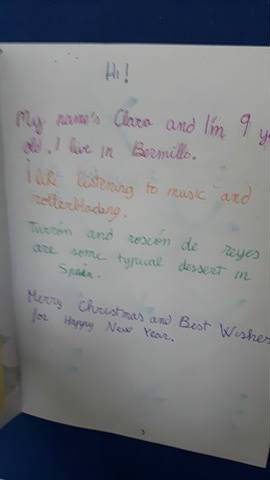 Hi!
My name's Clara and I'm 9 y
old. I live in Bermillo.
I like listening to music and
rollerblading.
Turrón and roscón de reyes
are some typical dessert in
Spain.
Merry Christmas and Best Wishes
for Happy New Year.